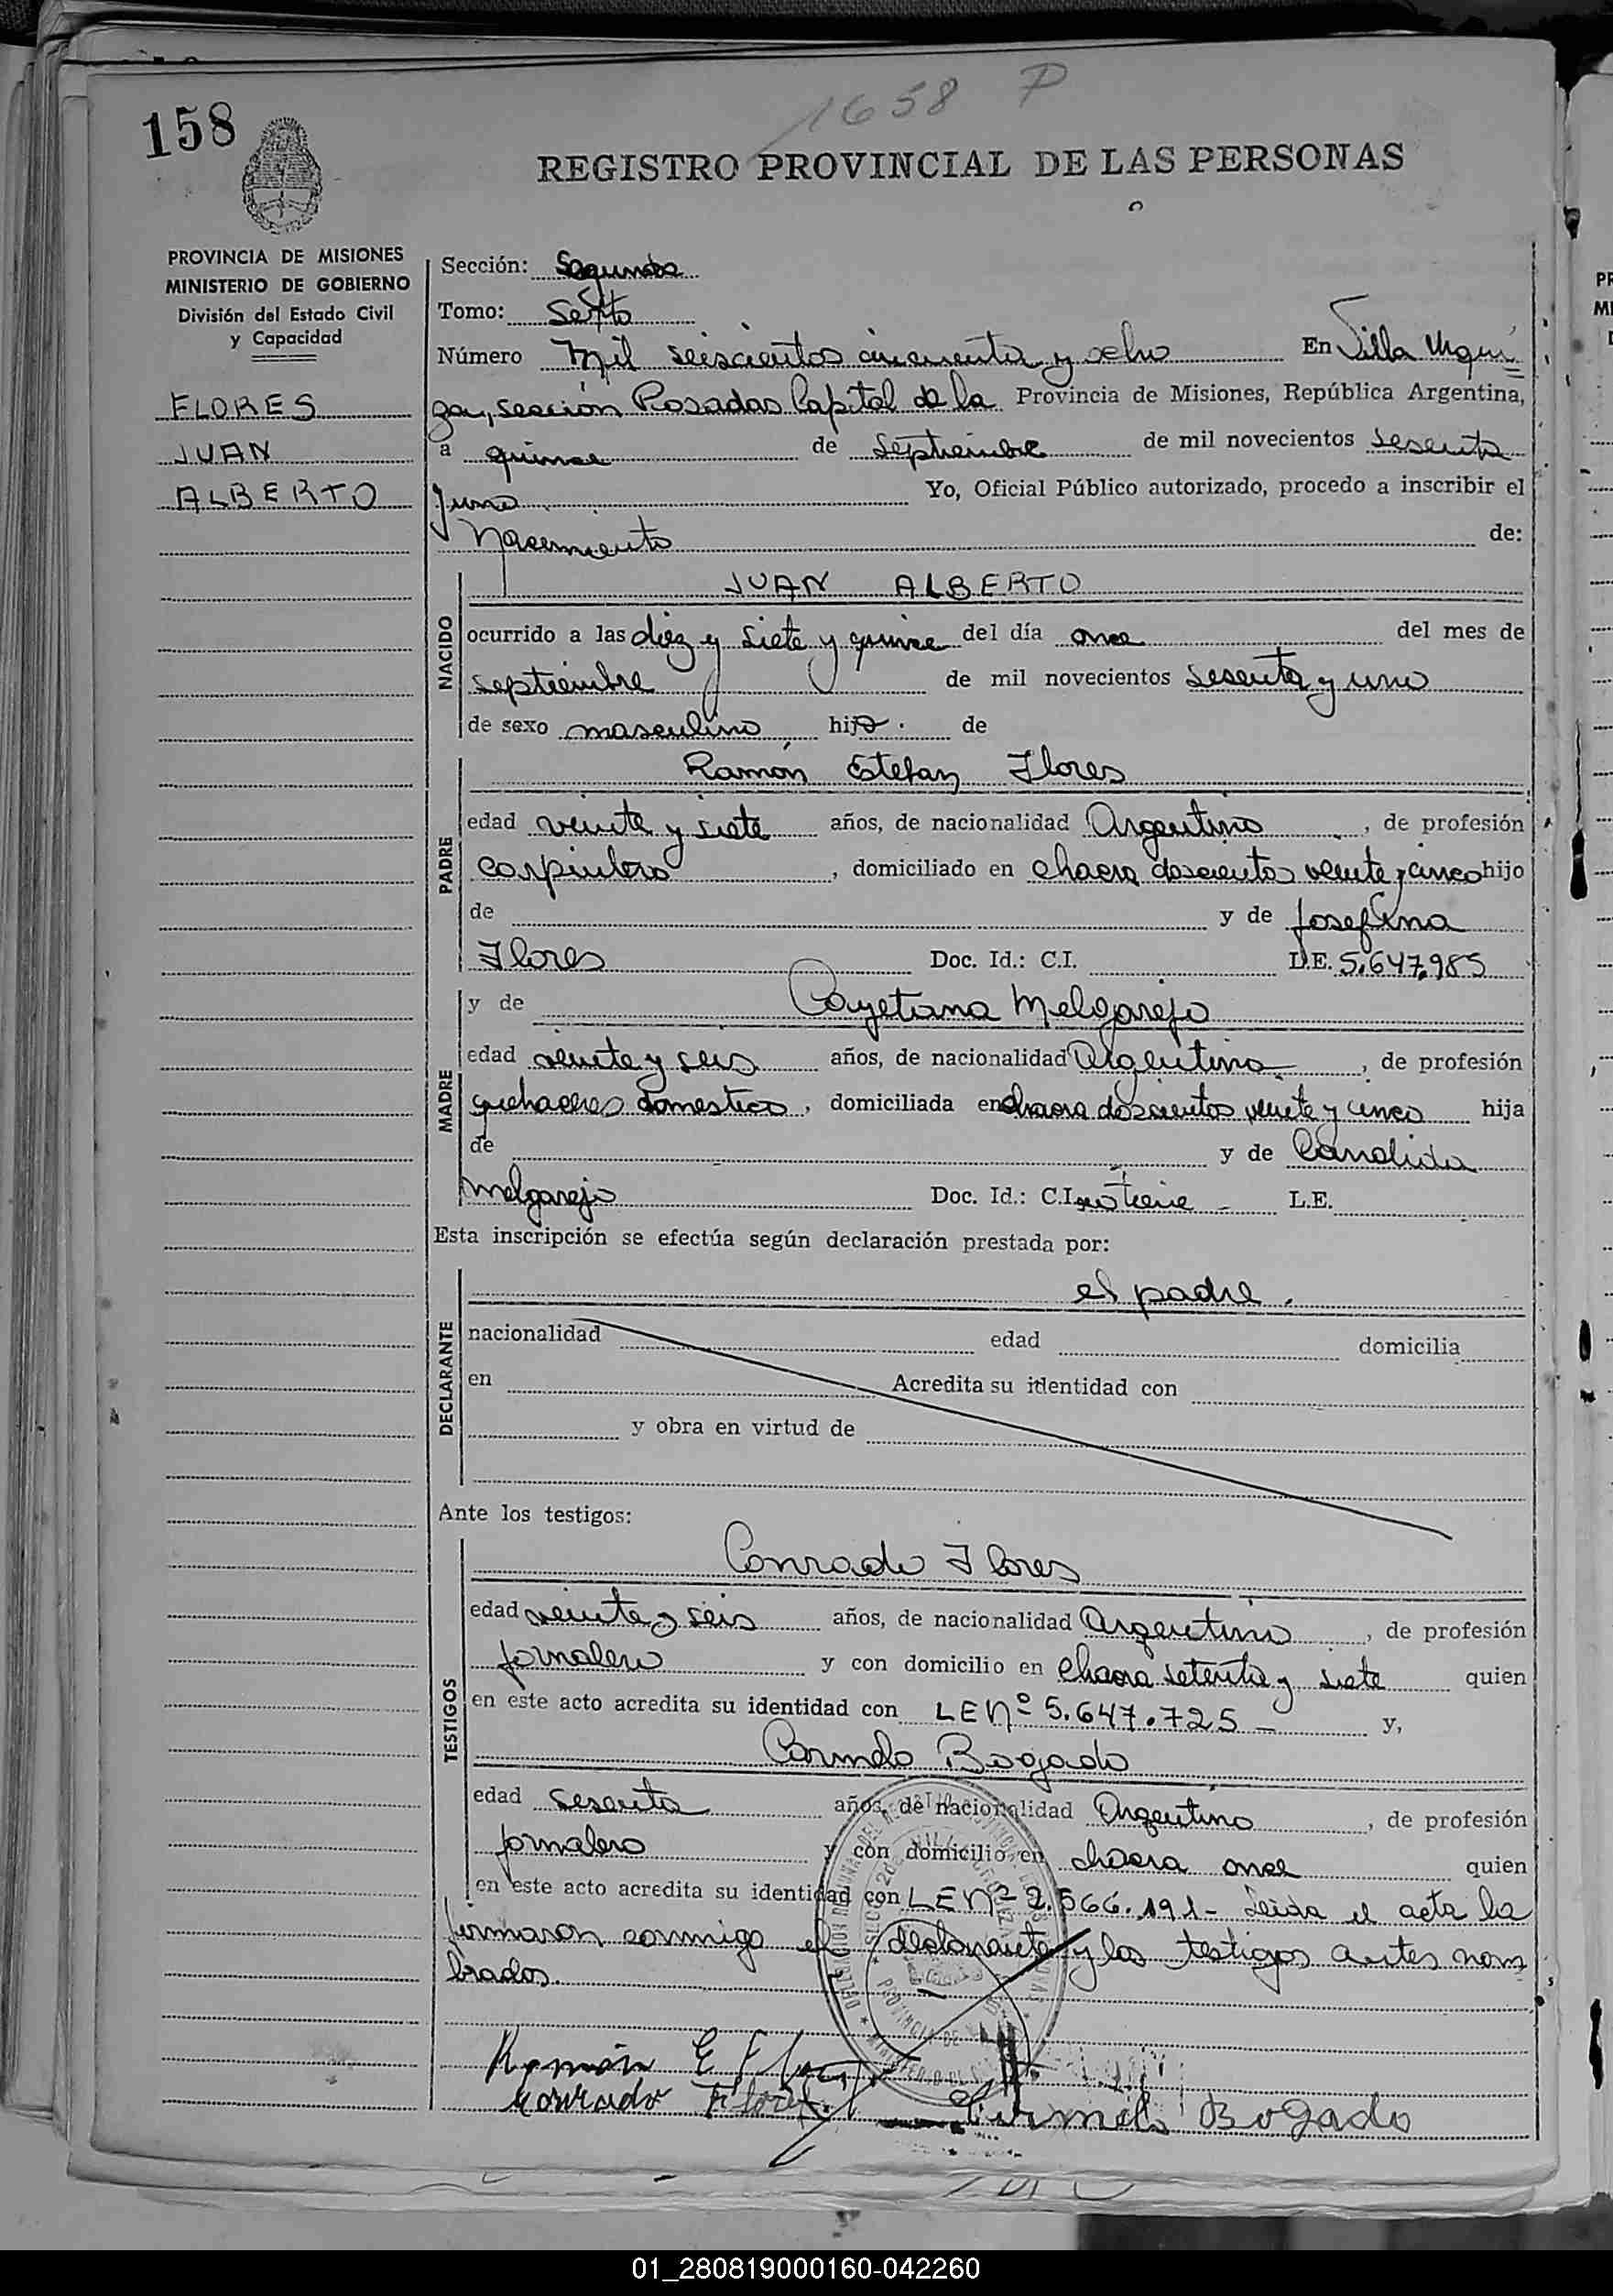 1658 P
158
REGISTRO PROVINCIAL DE LAS PERSONAS
PROVINCIA DE MISIONES
MINISTERIO DE GOBIERNO
División del Estado Civil
y Capacidad
FLORES
JUAN
ALBERTO
Sección: Segunda
Tomo: Sexto
Número Mil seiscientos cincuenta y ocho En Villa Urqui
za, sección Posadas Capital de la Provincia de Misiones, República Argentina,
a quince de Septiembre de mil novecientos sesenta
y uno Yo, Oficial Público autorizado, procedo a inscribir el
Nacimiento de:
NACIDO
JUAN ALBERTO
ocurrido a las diez y siete y quince del día once del mes de
septiembre de mil novecientos sesenta y uno
de sexo masculino, hijo. de
PADRE
Ramón Estefan Flores
edad veinte y siete años, de nacionalidad Argentino, de profesión
carpintero, domiciliado en chacra doscientos veinte y cinco hijo
de y de Josefina
Flores Doc. Id.: C.I. L.E. 5.647.985
MADRE
y de Cayetana Melgarejo
edad veinte y seis años, de nacionalidad Argentina, de profesión
quehaceres domesticos, domiciliada en chacra doscientos veinte y cinco hija
de y de Candida
Melgarejo Doc. Id.: C.I. no tiene - L.E.
Esta inscripción se efectúa según declaración prestada por:
DECLARANTE
el padre.
nacionalidad edad domicilia
en Acredita su identidad con
y obra en virtud de
Ante los testigos:
TESTIGOS
Conrado Flores
edad veinte y seis años, de nacionalidad Argentino, de profesión
jornalero y con domicilio en chacra setenta y siete quien
en este acto acredita su identidad con LE Nº 5.647.725 - y,
Carmelo Bogado
edad sesenta años, de nacionalidad Argentino, de profesión
jornalero y con domicilio en chacra once quien
en este acto acredita su identidad con LE Nº 2.566.191- Leida el acta la
firmaron conmigo el declarante y los testigos antes nom
brados.
Ramón E Flores
Conrado Flores Carmelo Bogado
01_280819000160-042260